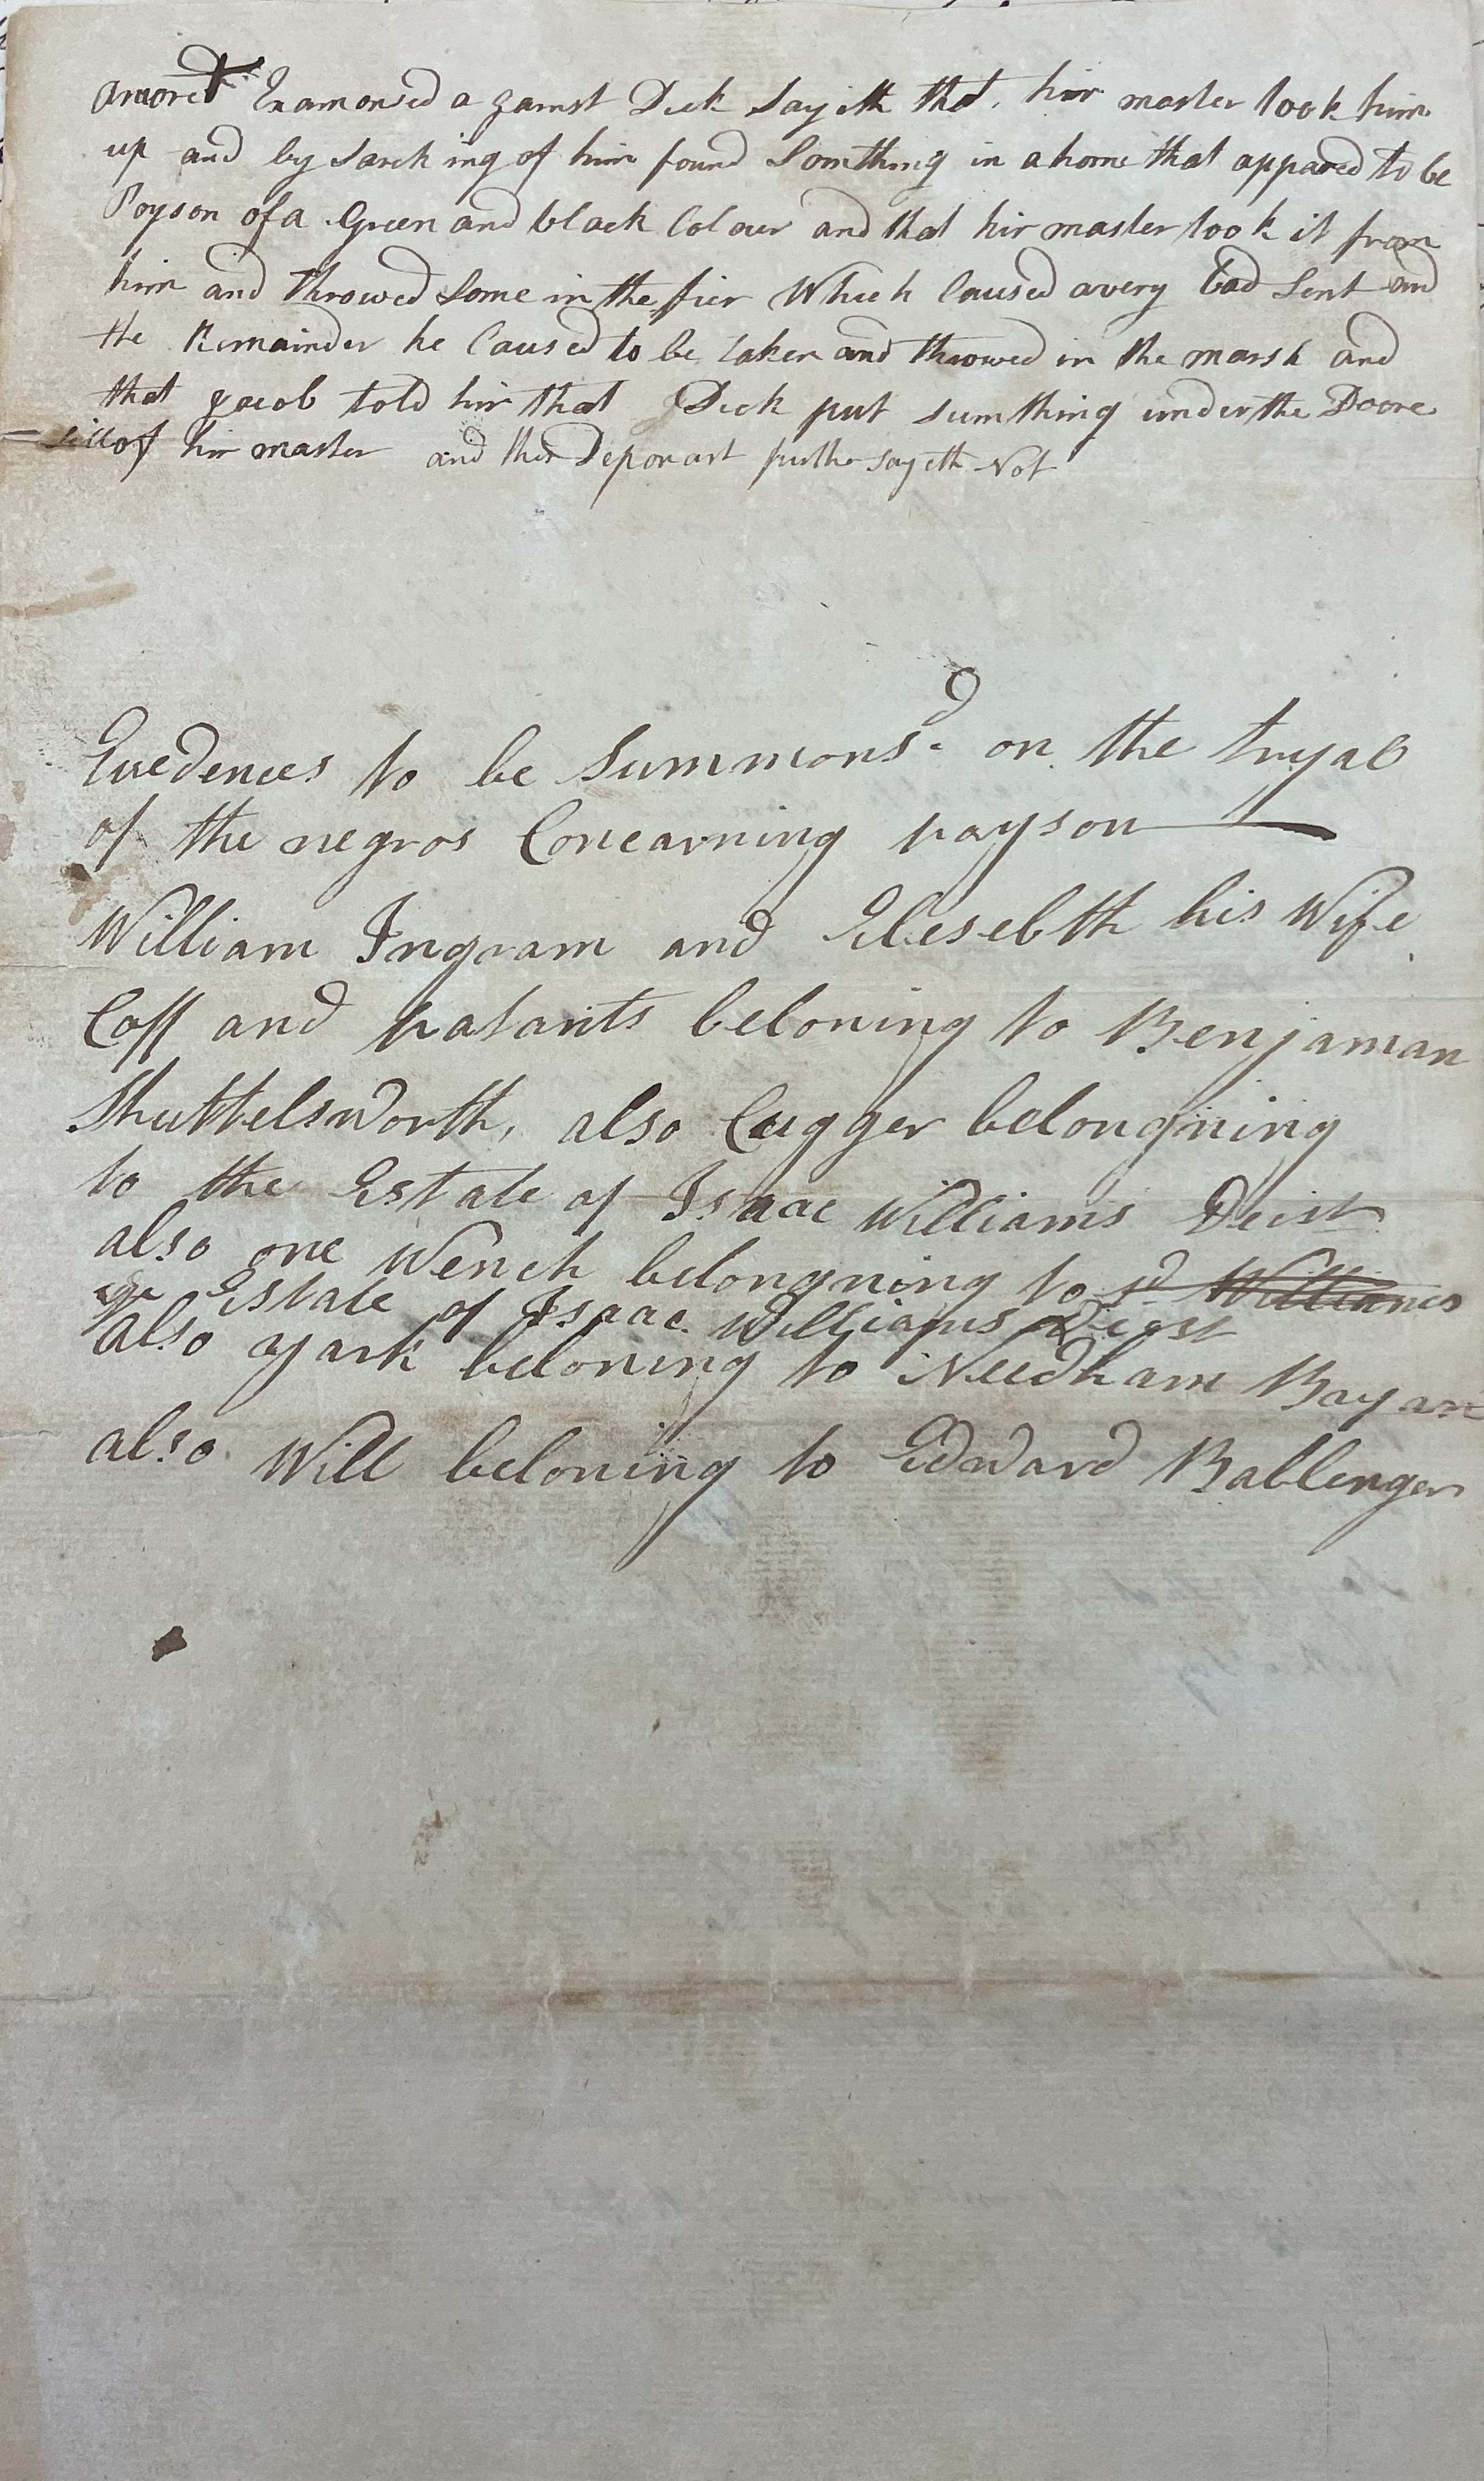 Examoned a gainst Dick Sayeth that, his master took him
up and by Sarch ing of him found Somthing in a horne that appared to be
Poyson of a Green and black Colour and that his master took it from
him and throwed Some in the fier Which Caused a very bad Sent and
the Remainder he Caused to be taken and throwed in the marsh and
that Jacob told him that Dick put sumthing under the Doore
sill of his master and this Deponant furthe sayeth Not
Evedences to be Summonsd on the tryal
of the negros Concarning payson
William Ingram and Elesebth his Wife
Coff and patants beloning to Benjaman
Shuttelsworth, also Cugger belongning
to the Estate of Isaac Williams Deist
also one Wench belongning to sd Williams
ye Estate of Isaac Williams Deist
also yark beloning to Needham Bayan
also Will beloning to Edward Ballenger